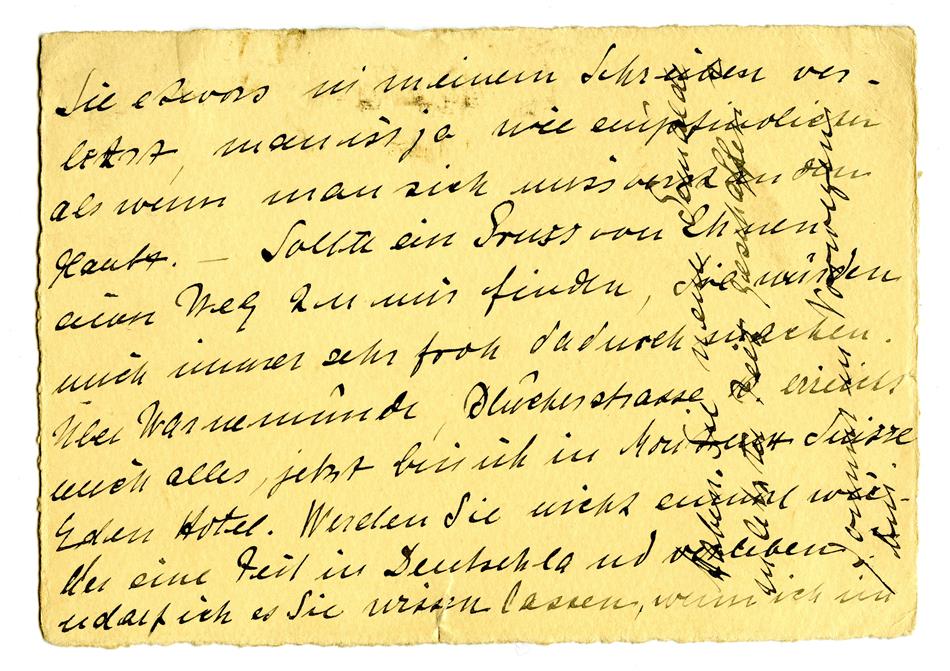 Sie etwas in meinem Schreiben ver-
letzt, man ist ja nie empfindlicher
als wenn man sich missverstanden
glaubt. — Sollte ein Gruss von Ihnen
einen Weg zu mir finden, Sie würden
mich immer sehr froh dadurch machen.
Über Warnemünde, Blücherstrasse erreicht
mich alles, jetzt bin ich in Montreux Suisse
Eden Hotel. Werden Sie nicht einmal wie-
der eine Zeit in Deutschland verleben
u darf ich es Sie wissen lassen, wenn ich im
haben. Sie meine
in letzter Zeit geschaffen
Norwegen